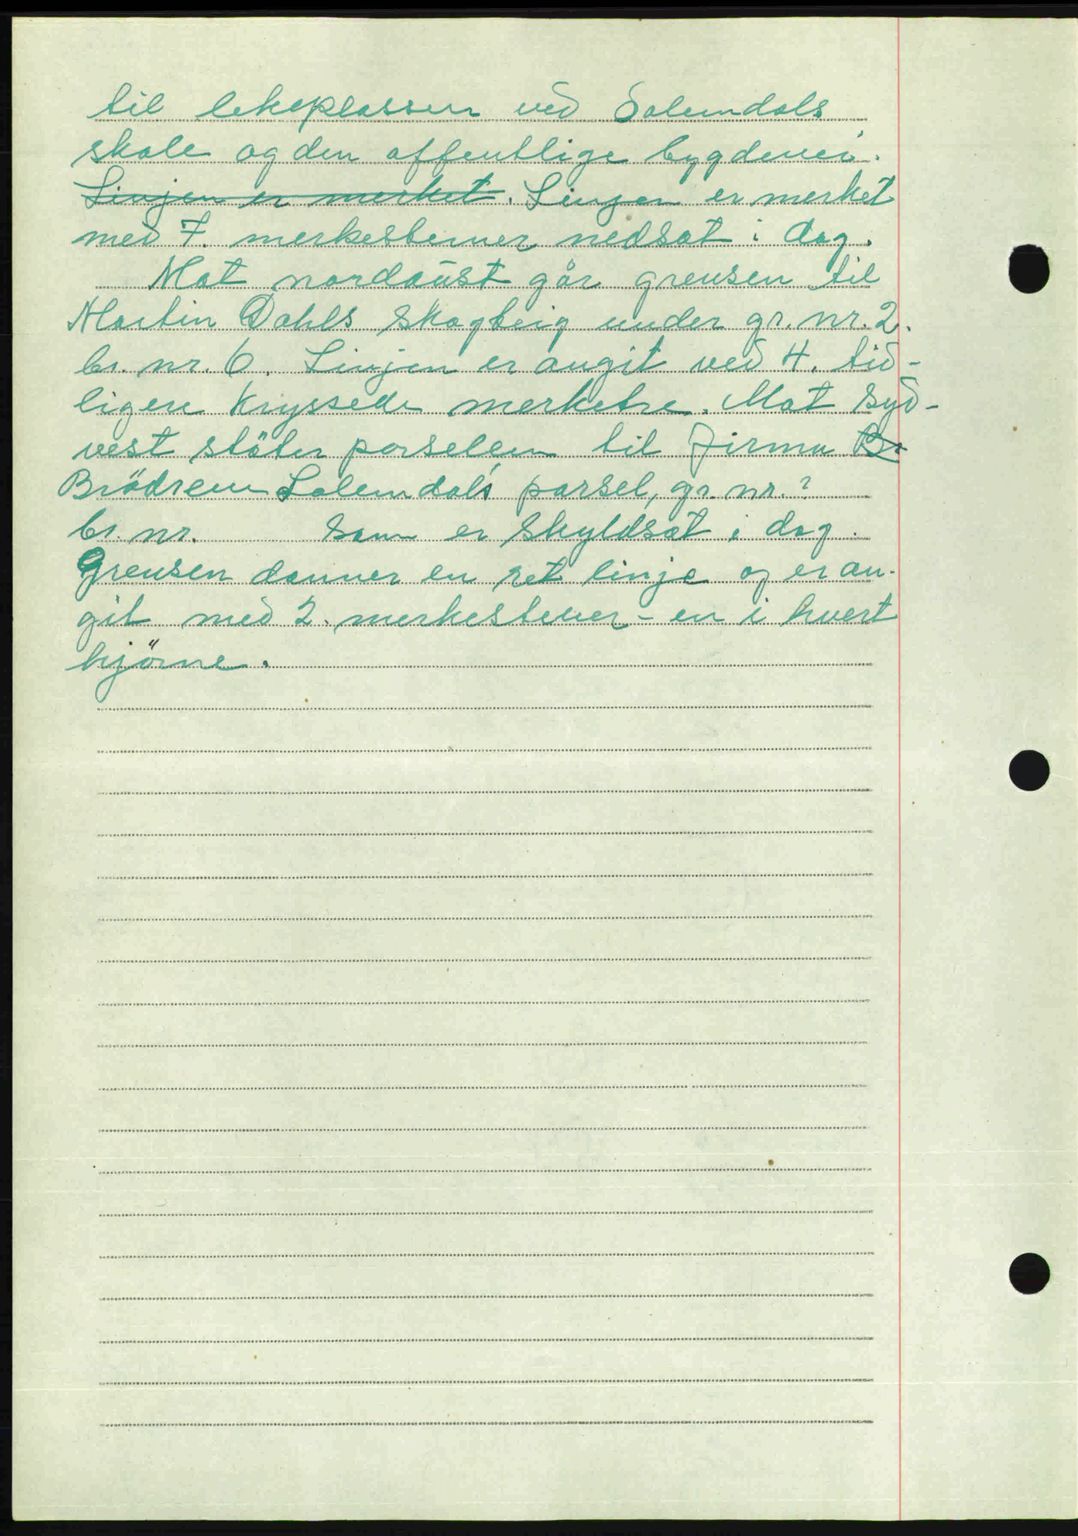 til lekeplassen ved Solemdals
skole og den offentlige bygdevei.
Linjen er merket. Linjen er merket
med 7. merkestener nedsat i dag.
Mot nordaust går grensen til
Martin Dahls skogteig under gr. nr. 2.
br. nr. 6. Linjen er angit ved 4. tid-
ligere kryssede merketre. Mot syd-
vest støter parselen til Firma Br
Brödrene Solemdals parsel, gr. nr. 2
br. nr. som er skyldsat i dag.
Grensen danner en ret linje og er an-
git med 2. merkestener - en i hvert
hjörne.